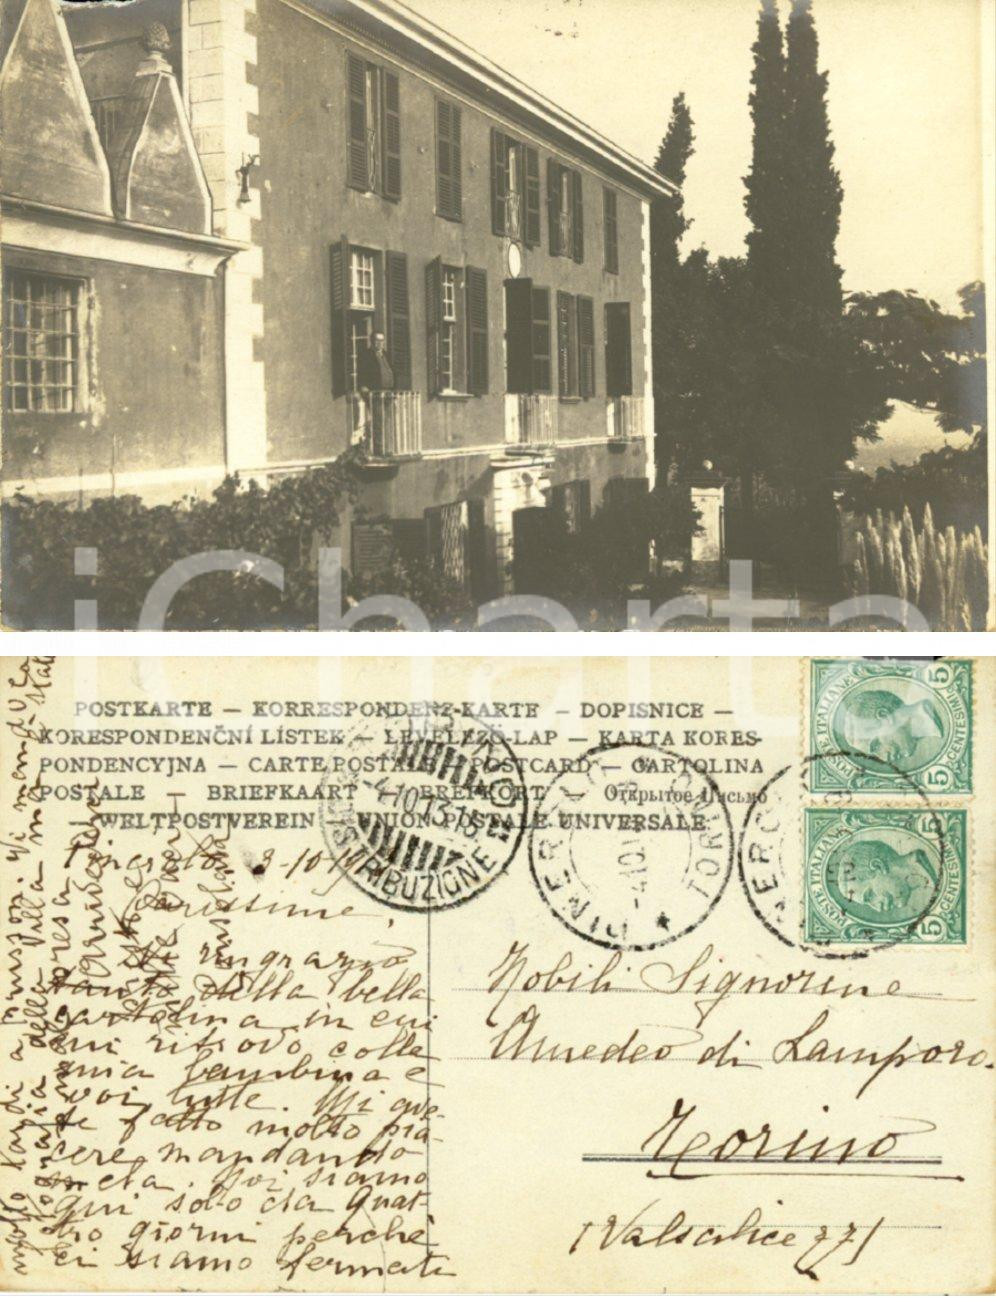 iCharta
POSTKARTE — KORRESPONDENZ-KARTE — DOPISNICE —
KORESPONDENČNÍ LÍSTEK — LEVELEZŐ-LAP — KARTA KORES-
PONDENCYJNA — CARTE POSTALE — POSTCARD — CARTOLINA
POSTALE — BRIEFKAART — BREFKORT — Открытое Письмо
— WELTPOSTVEREIN — UNION POSTALE UNIVERSALE —
POSTE ITALIANE
CENTESIMI
5
5
POSTE ITALIANE
CENTESIMI
5
5
4.10.13.15
DISTRIBUZIONE
PINEROLO
TORINO
Pinerolo 3-10-
Carissime,
Vi ringrazio
tanto della bella
cartolina in cui
mi ritrovo colla
mia bambina e
voi tutte. Mi ave-
te fatto molto pia-
cere mandando
mela. Noi siamo
qui solo da quat-
tro giorni perchè
ci siamo fermati
molto tardi a Vi mando la
fotografia della Villa
Nobili Signorine
Amedeo di Lamporo.
Torino
(Valsalice 77)